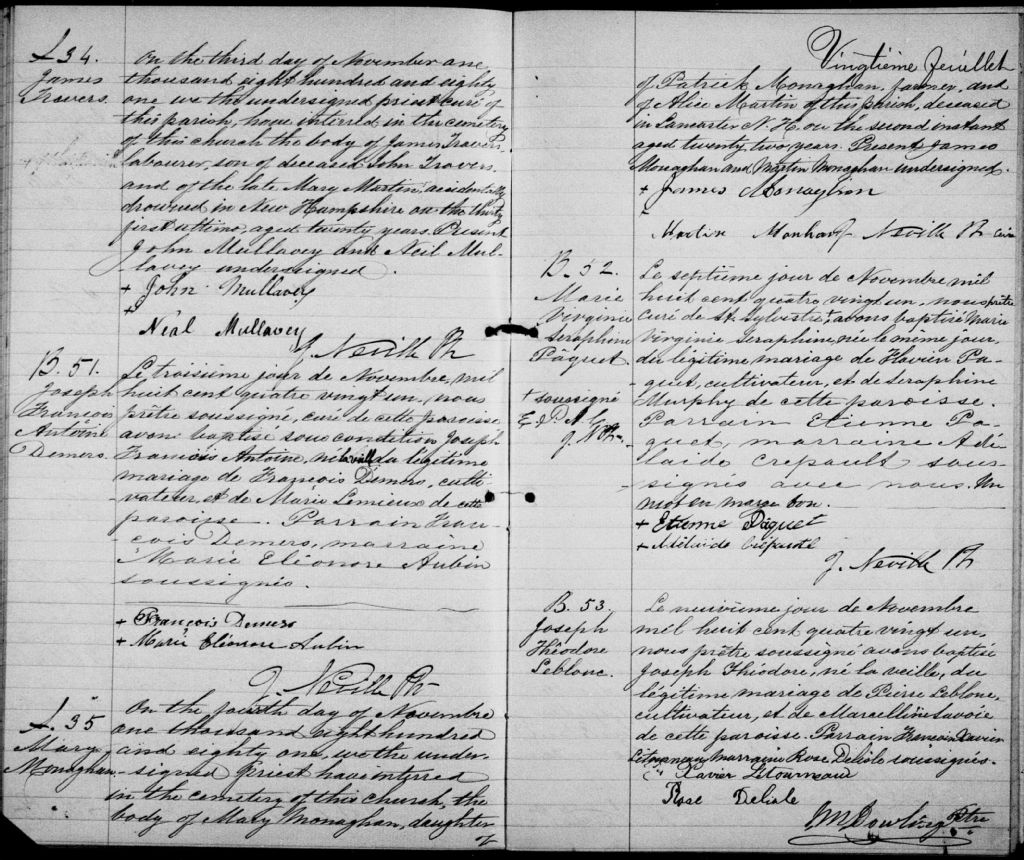 S 34.
James
Travers.
On the third day of November one
thousand eight hundred and eighty
one we the undersigned priest curé of
this parish, have interred in the cemetery
of this church the body of James Travers,
labourer, son of deceased John Travers
and of the late Mary Martin, accidentally
drowned in New Hampshire on the thirty
first ultimo, aged twenty years. Present
John Mullavey and Neil Mul-
lavey undersigned.
+ John Mullavey
+
Neal Mullavey
J. Neville Ptr
B. 51.
Joseph
François
Antoine
Demers.
Le troisième jour de Novembre, mil
huit cent quatre vingt un, nous
prêtre soussigné, curé de cette paroisse
avons baptisé sous condition Joseph
François Antoine, né la veille, du légitime
mariage de François Demers, culti-
vateur, et de Marie Lemieux de cette
paroisse. Parrain Fran-
çois Demers, marraine
Marie Eléonore Aubin
soussignés.
+ François Demers
+ Marie Eléonore Aubin
J. Neville Ptr
S. 35
Mary
Monaghan
On the fourth day of Novembre
one thousand eight hundred
and eighty one, we the under-
signed Priest have interred
in the cemetery of this church, the
body of Mary Monaghan, daughter
of
Vingtième feuillet
of Patrick Monaghan, farmer, and
of Alice Martin of this parish, deceased
in Lancaster N. H. on the second instant
aged twenty two years. Present James
Monaghan and Martin Monaghan undersigned.
+ James Monaghan
Martin J. Neville Ptr Curé
B. 52.
Marie
Virginie
Séraphine
Pâquet
+ soussigné
E. P. A. C.
J. N. Ptr
Le septième jour de Novembre mil
huit cent quatre vingt un, nous prêtre
curé de St. Sylvestre + avons baptisé Marie
Virginie Séraphine, née le même jour,
du légitime mariage de Flavien Pa-
quet, cultivateur, et de Séraphine
Murphy de cette paroisse.
Parrain Etienne Pa-
quet, marraine Adé-
laide Crepault sous-
signés avec nous. Un
mot en marge bon.
+ Etienne Pâquet
+ Adéläide Crépault
J. Neville Ptr
B. 53.
Joseph
Théodore
Leblonc.
Le neuvième jour de Novembre
mil huit cent quatre vingt un,
nous prêtre soussigné avons baptisé
Joseph Théodore, né la veille, du
légitime mariage de Pierre Leblonc,
cultivateur, et de Marcelline Savoie
de cette paroisse. Parrain François Xavier
Létourneau, marraine Rose Delisle soussignés.
Xavier Létourneaud
Rose Delisle
JM Dowling Ptre